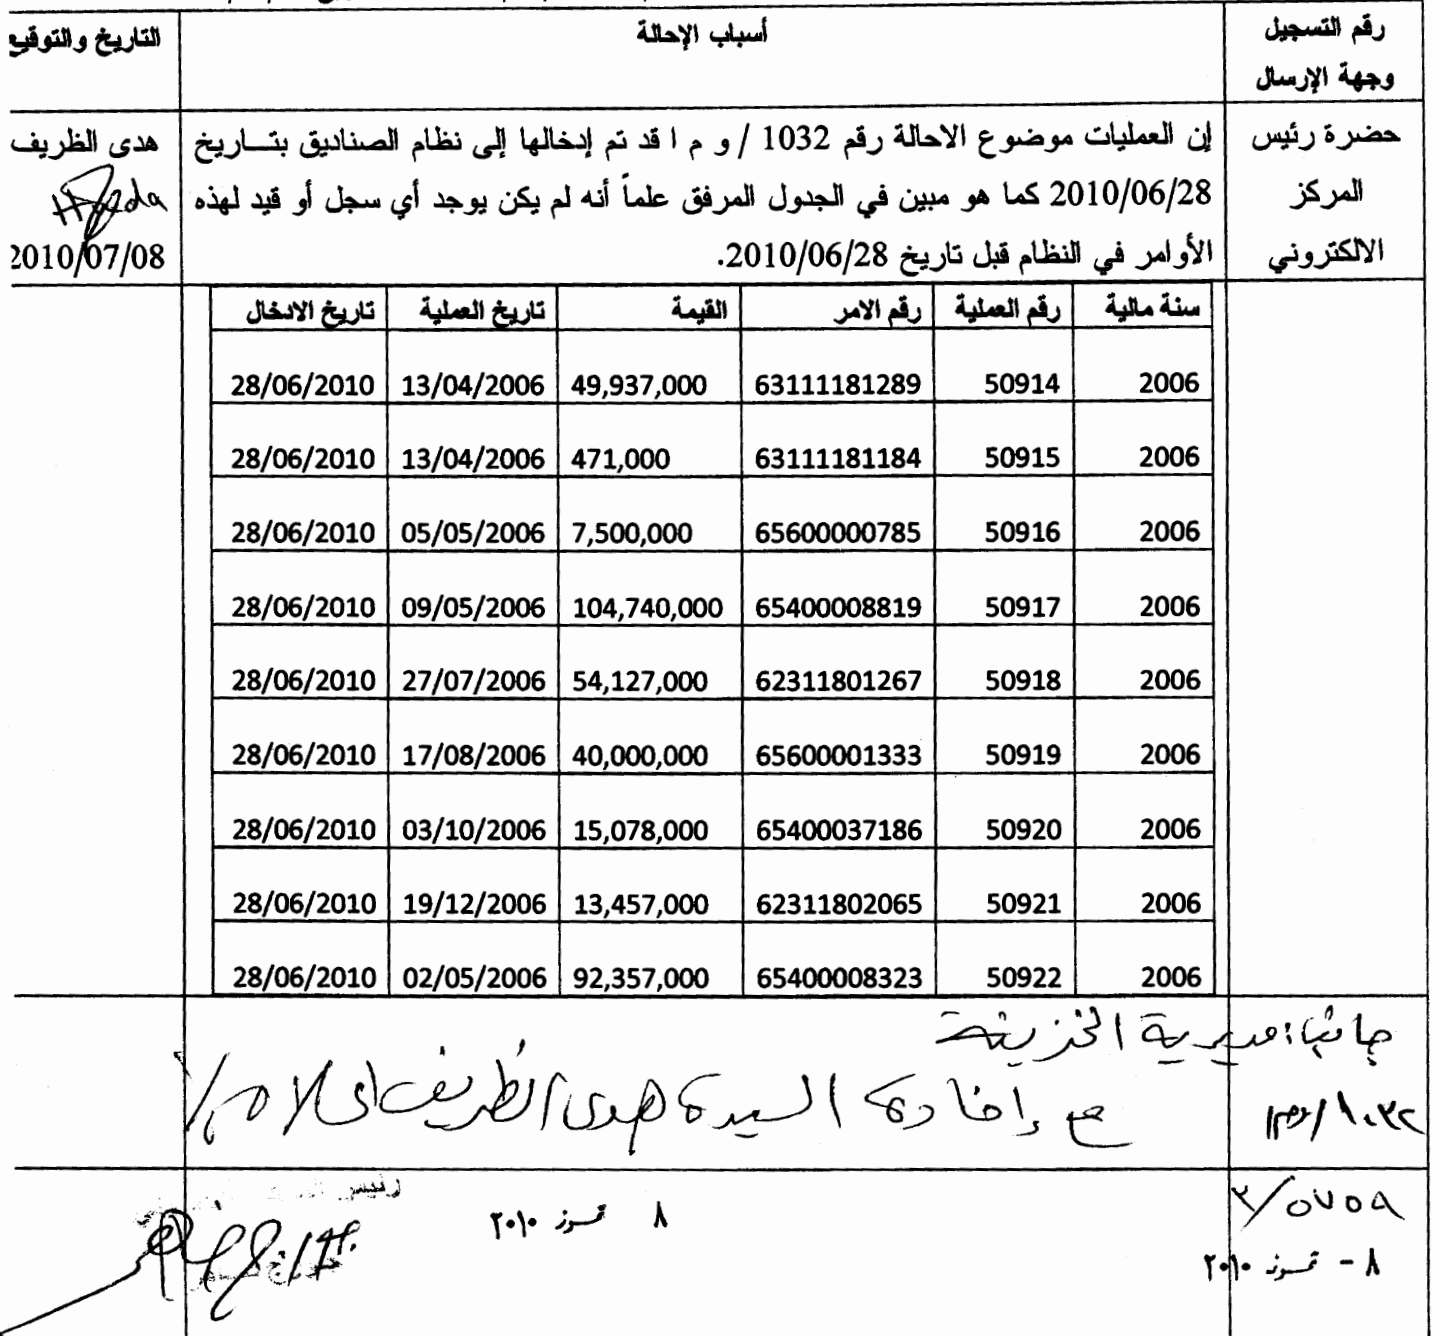 رقم التسجيل وجهة الإرسال	أسباب الإحالة	التاريخ والتوقيع
حضرة رئيس المركز الالكتروني
إن العمليات موضوع الاحالة رقم 1032 / و م ا قد تم إدخالها إلى نظام الصناديق بتـــاريخ
2010/06/28 كما هو مبين في الجدول المرفق علماً أنه لم يكن يوجد أي سجل أو قيد لهذه
الأوامر في النظام قبل تاريخ 2010/06/28.
هدى الظريف
Hoda
2010/07/08
سنة مالية	رقم العملية	رقم الامر	القيمة	تاريخ العملية	تاريخ الادخال
2006	50914	63111181289	49,937,000	13/04/2006	28/06/2010
2006	50915	63111181184	471,000	13/04/2006	28/06/2010
2006	50916	65600000785	7,500,000	05/05/2006	28/06/2010
2006	50917	65400008819	104,740,000	09/05/2006	28/06/2010
2006	50918	62311801267	54,127,000	27/07/2006	28/06/2010
2006	50919	65600001333	40,000,000	17/08/2006	28/06/2010
2006	50920	65400037186	15,078,000	03/10/2006	28/06/2010
2006	50921	62311802065	13,457,000	19/12/2006	28/06/2010
2006	50922	65400008323	92,357,000	02/05/2006	28/06/2010
جانب مديرية الخزينة
١٠٣٢/وم ا
مع إفادة السيدة هدى الظريف
رئيس
٨ تموز ٢٠١٠
٨ - تموز ٢٠١٠